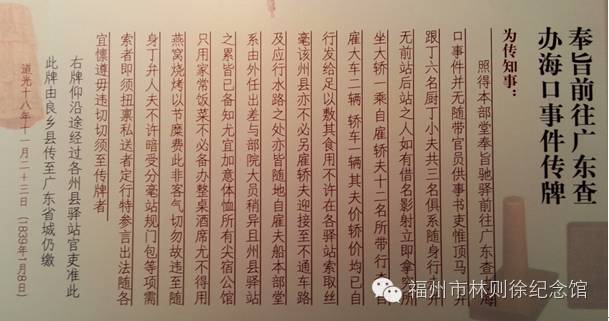 奉旨前往广东查
办海口事件传牌
为传知事：
照得本部堂奉旨驰驿前往广东查办海
口事件并无随带官员供事书吏惟顶马一弁
跟丁六名厨丁小夫共三名俱系随身行走并
无前站后站之人如有借名影射立即拿究所
坐大轿一乘自雇轿夫十二名所带行李自
雇大车二辆轿车一辆其夫价轿价均已自
行发给足以敷其食用不许在各驿站索取丝
毫该州县亦不必另雇轿夫迎接至不通车路
及应行水路之处亦皆随地自雇夫船本部堂
系由外任出差与部院大员稍异且州县驿站
之累皆已备知尤宜加意体恤所有尖宿公馆
只用家常饭菜不必备办整桌酒席尤不得用
燕窝烧烤以节糜费此非客气切勿故违至随
身丁弁人夫不许暗受分毫站规门包等项需
索者即须扭禀私送者定行特参言出法随各
宜懔遵毋违切切须至传牌者
右牌仰沿途经过各州县驿站官吏准此
此牌由良乡县传至广东省城仍缴
道光十八年十一月二十三日（1839年1月8日）
福州市林则徐纪念馆